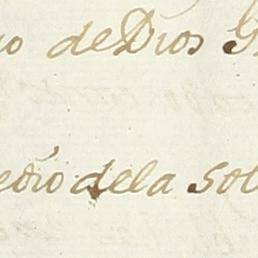 o de Dios G
edio dela sol